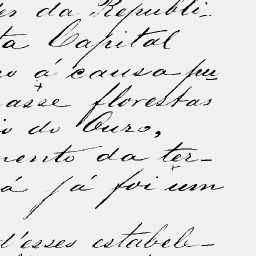 es da Republi-
ta Capital
á causa pu
asse florestas
io do Ouro,
mento da ter-
á já foi um
d'esses estabele-